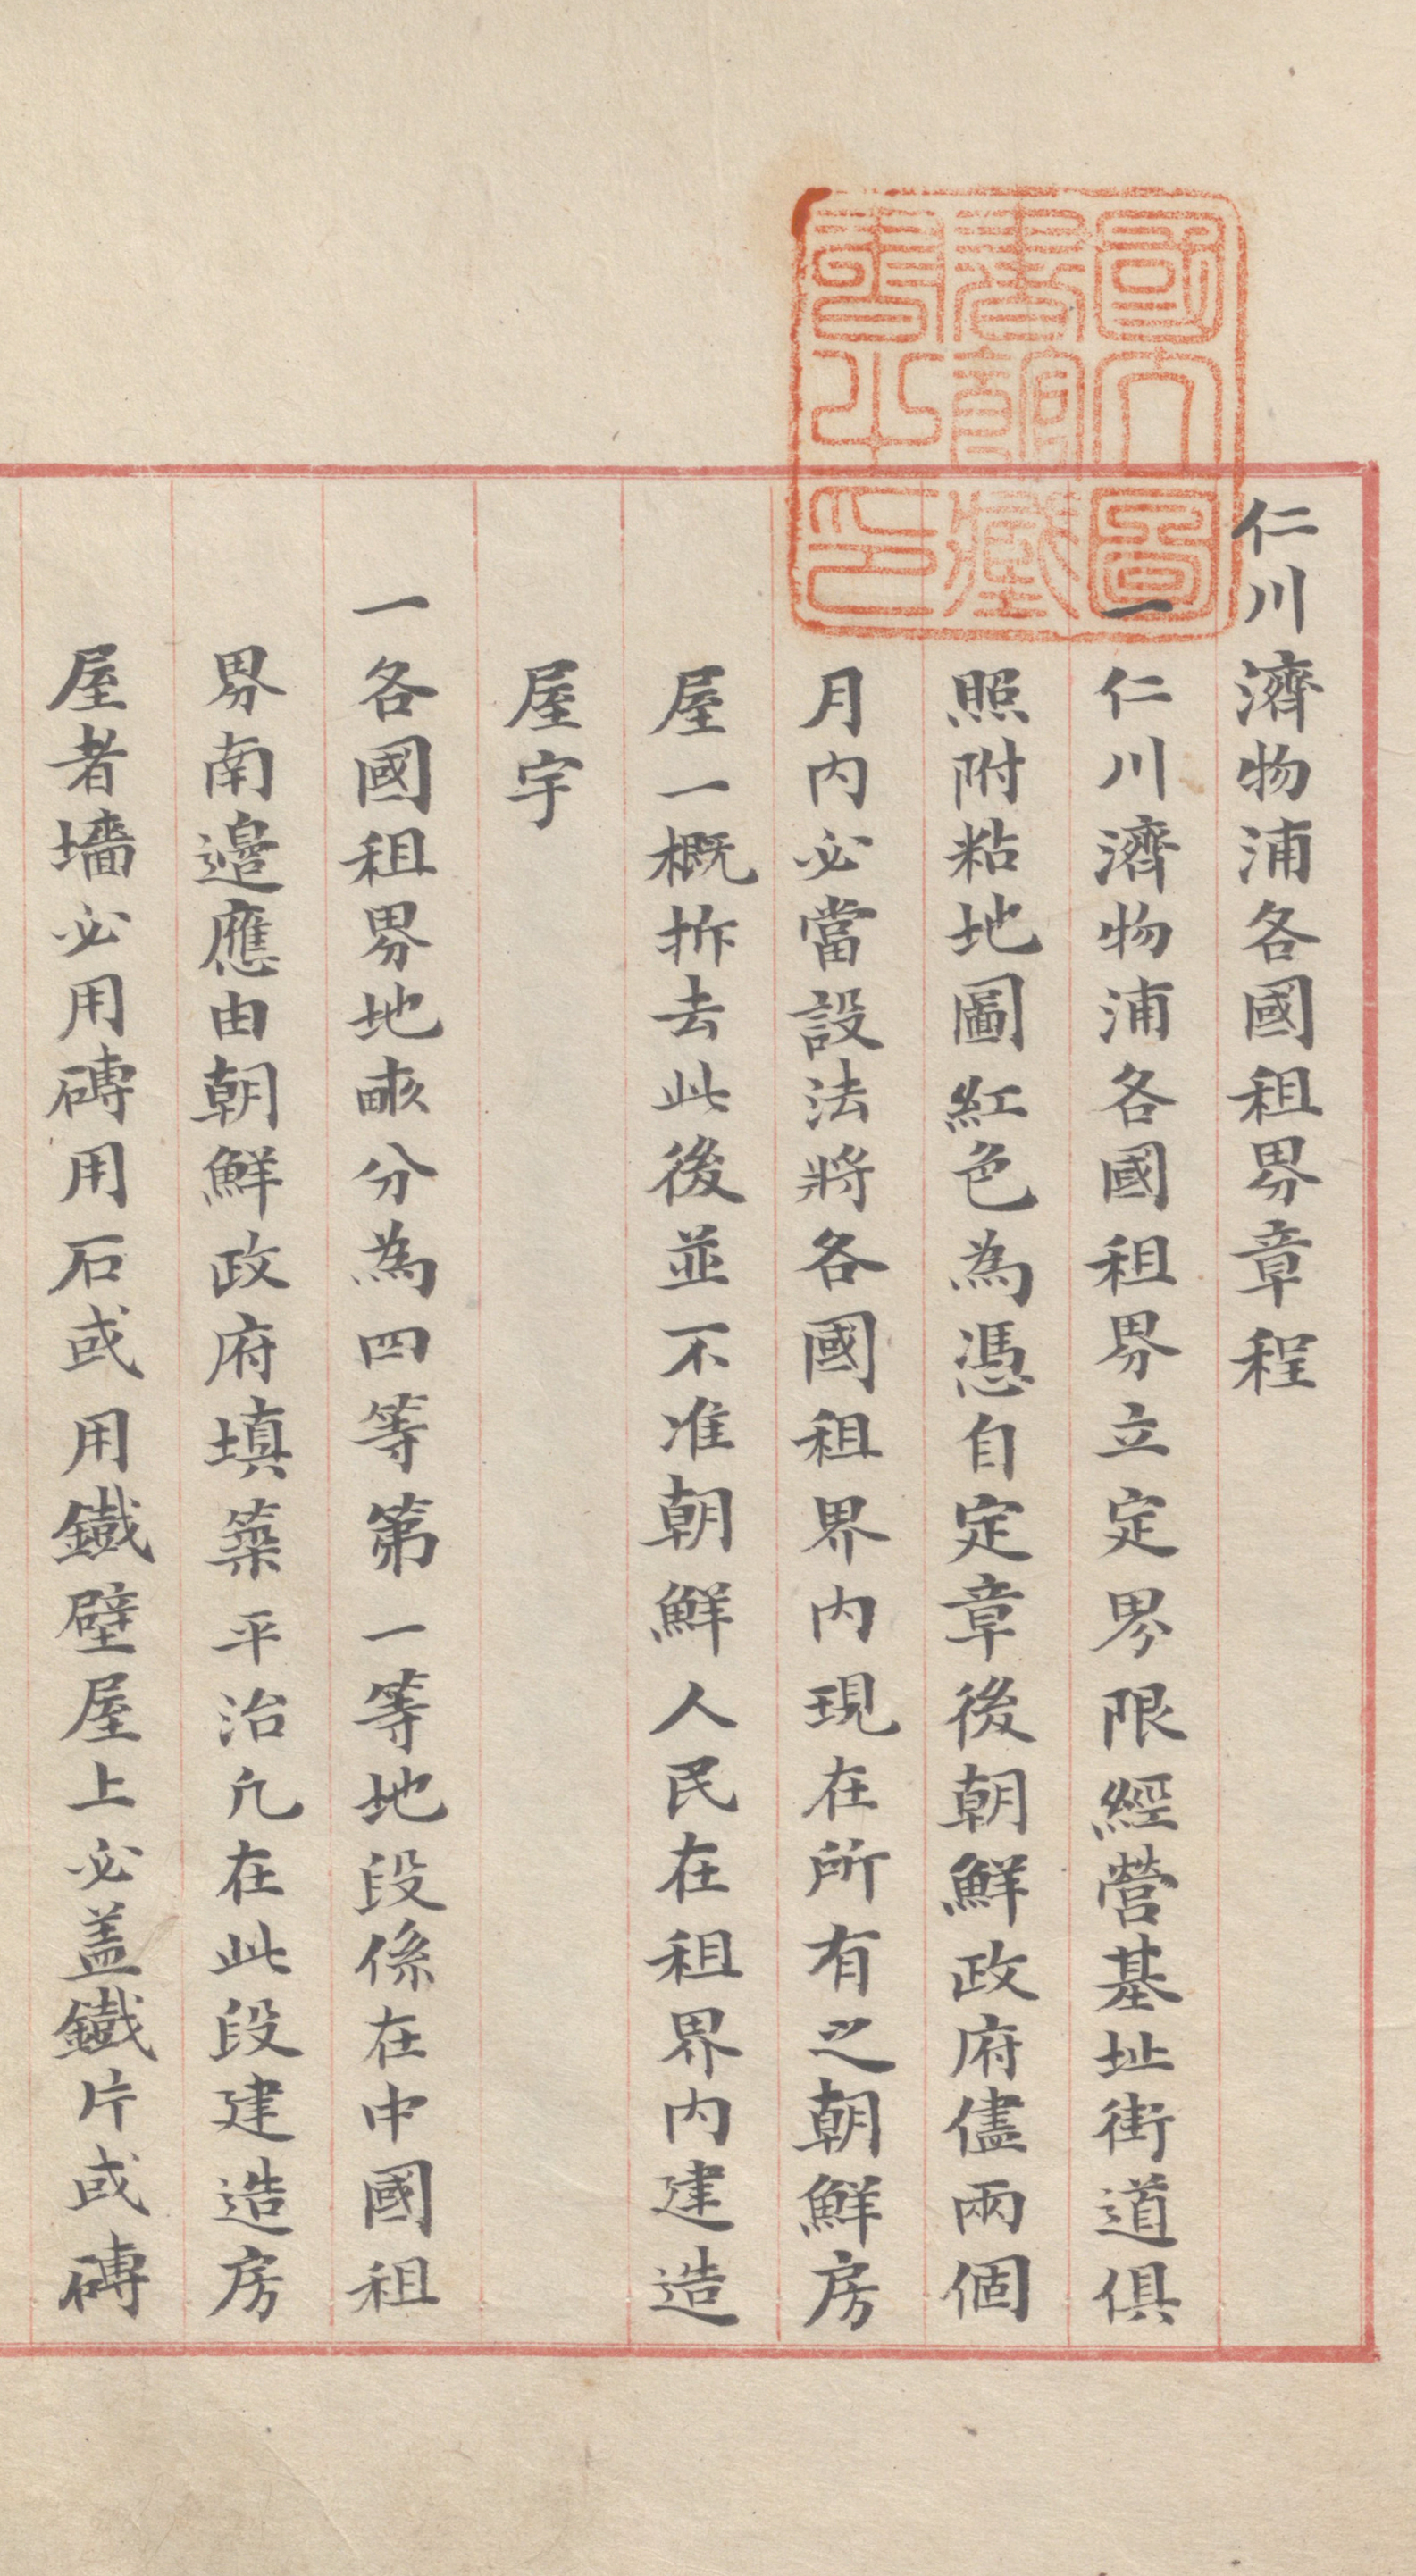 仁川濟物浦各國租界章程
一仁川濟物浦各國租界立定界限經營基址街道俱
照附粘地圖紅色為憑自定章後朝鮮政府儘兩個
月内必當設法將各國租界内現在所有之朝鮮房
屋一概拆去此後並不准朝鮮人民在租界内建造
屋宇
一各國租界地畝分為四等第一等地段係在中國租
界南邊應由朝鮮政府填築平治凡在此段建造房
屋者墻必用磚用石或用鐵壁屋上必盖鐵片或磚
國立圖
書館藏
書之印